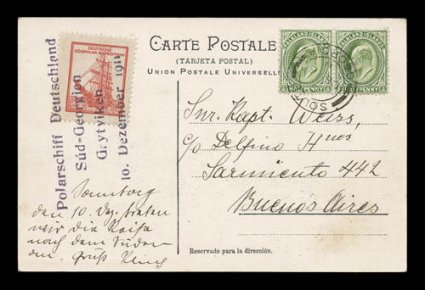 CARTE POSTALE
(TARJETA POSTAL)
UNION POSTALE UNIVERSELLE
DEUTSCHE
FALKLAND ISLANDS
FALKLAND ISLANDS
SOUTH
Polarschiff Deutschland
Süd-Georgien
Grytviken
10. Dezember 1911
Snr. Kapt. Weiss,
c/o Delfino Hnos
Sarmiento 442
Buenos Aires
Sonntag
den 10. Dez. treten
wir die Reise
nach dem Süden
an. Gruß
Reservado para la dirección.